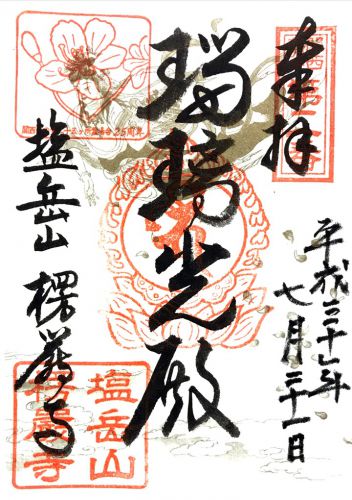 奉拝
平成三十年
七月三十一日
瑠璃光殿
塩岳山 楞厳寺
25周年
塩岳山
楞厳寺